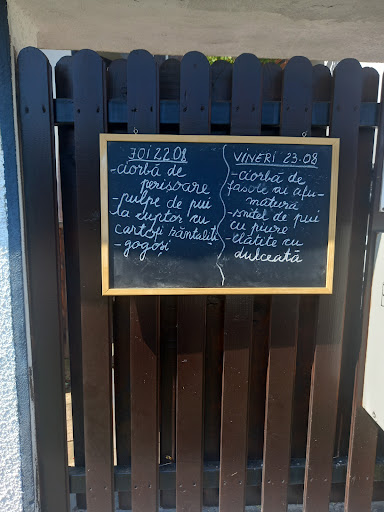 JOI 22.08
-ciorbă de
perisoare
-pulpe de pui
la cuptor cu
cartofi zăntaliti
-gogoși
VINERI 23.08
-ciorbă de
fasole cu afu-
mătură
-snitel de pui
cu piure
-clătite cu
dulceată